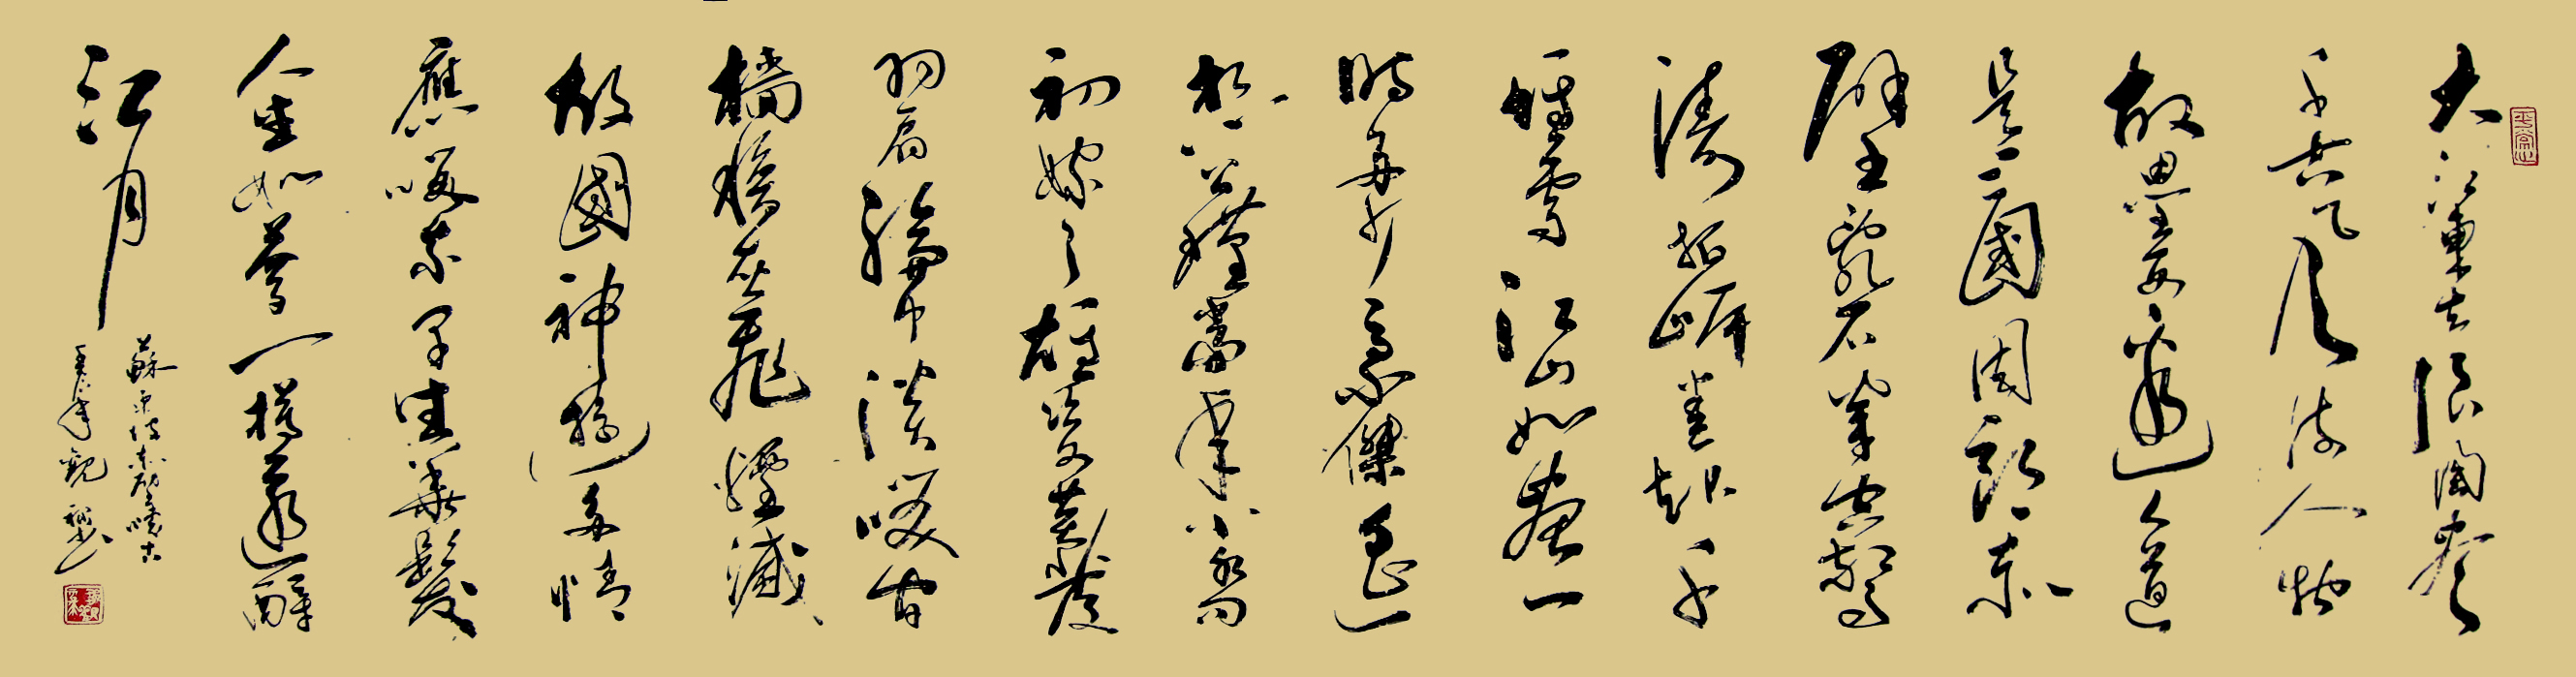 平常心
大江東去浪淘盡
千古風流人物
故壘西邊人道
是三國周郎赤
壁亂石穿空驚
濤拍岸卷起千
堆雪江山如畫一
時多少豪傑遙
想公瑾當年小喬
初嫁了雄姿英發
羽扇綸巾談笑間
檣櫓灰飛煙滅
故國神遊多情
應笑我早生華髮
人生如夢一樽還酹
江月
蘇東坡赤壁懷古